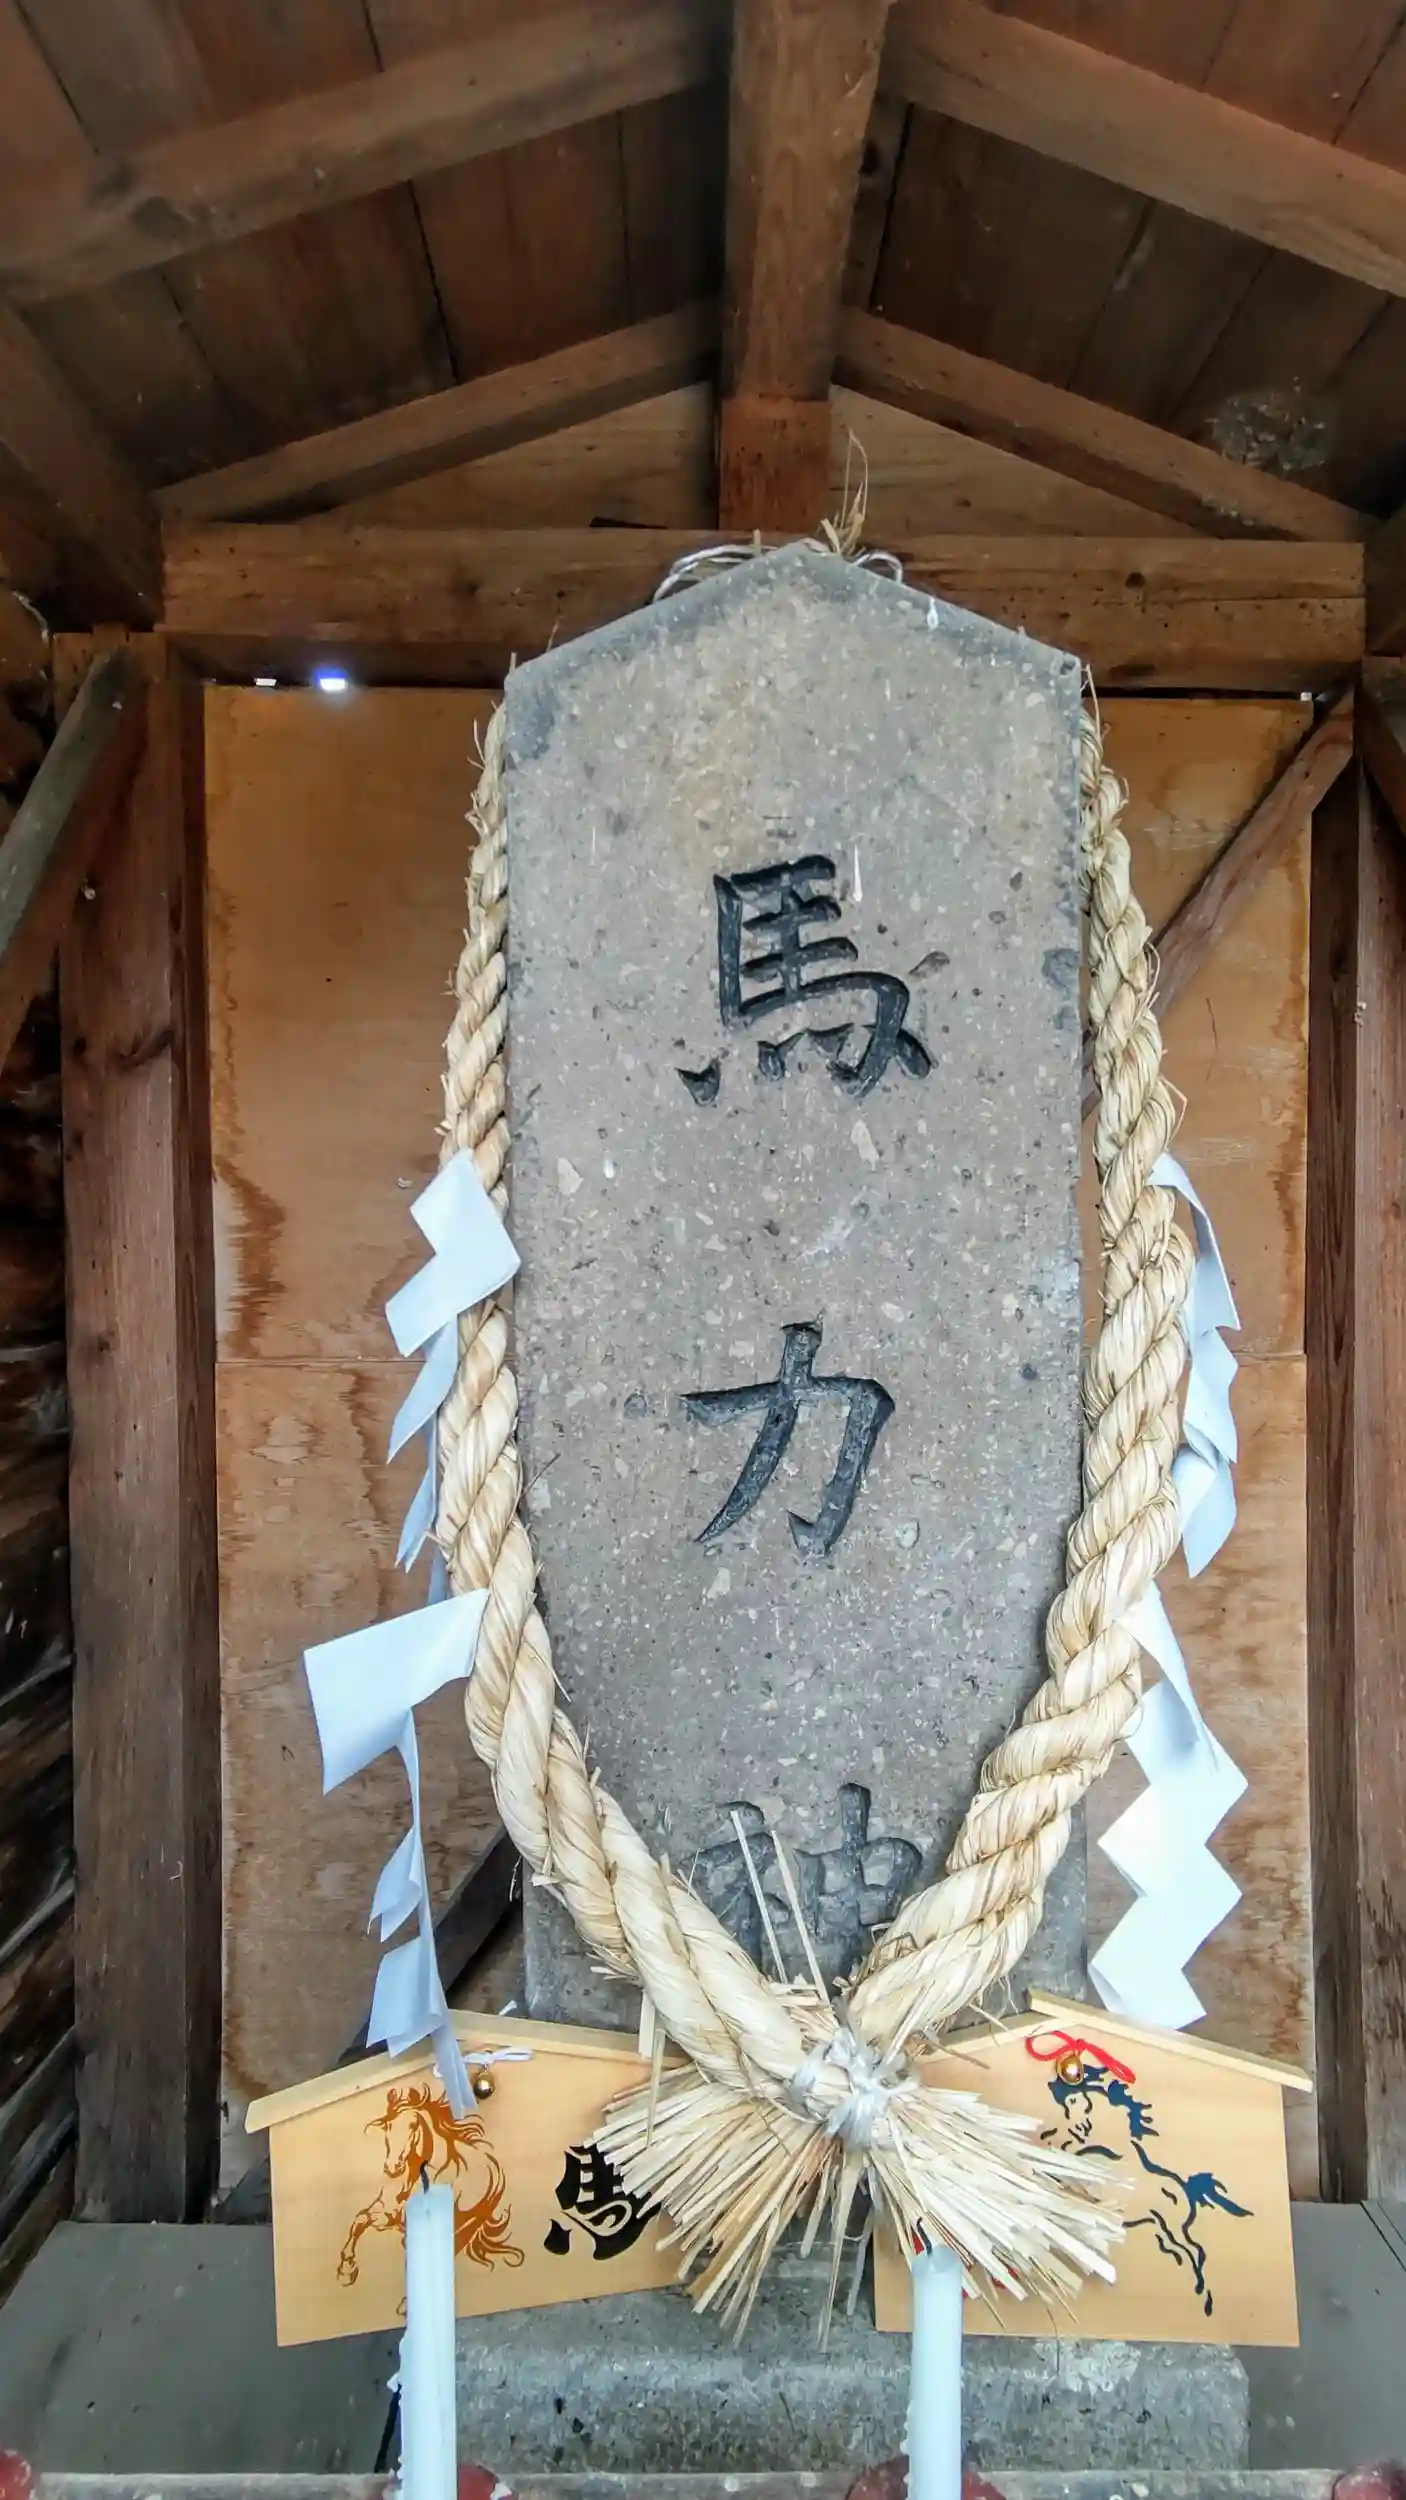 馬
力
神
馬